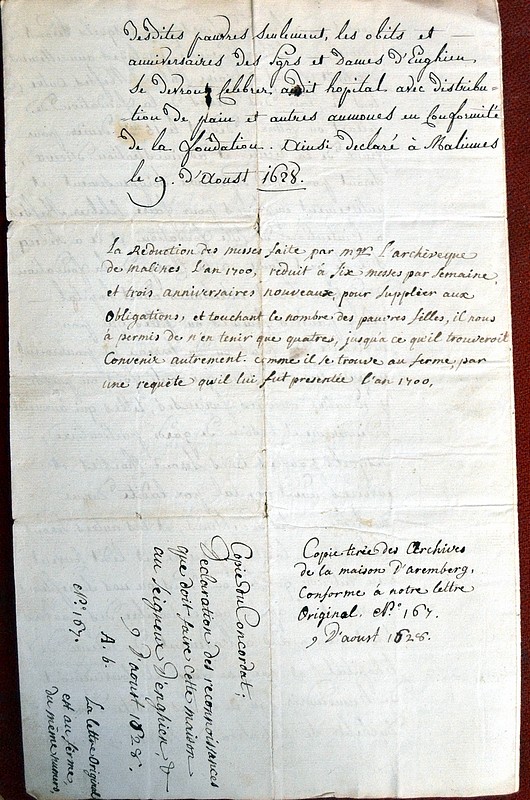 desdites pauvres seulement, les obits et
anniversaires des Sgrs et Dames d'Enghien
se devront Celebrer audit hopital avec distribu-
tion de pain et autres aumones en Conformité
de la fondation. Ainsi declaré à Malines
le 9. d'Aoust 1628.
La Reduction des messes faite par mgr. l'archêveque
de malines l'an 1700, reduit à six messes par semaine,
et trois anniversaires nouveaux, pour suppléer aux
Obligations, et touchant le nombre des pauvres filles, il nous
à permis de n'en tenir que quatre, jusqu'a ce qu'il trouveroit
Convenir autrement. comme il se trouve au ferme, par
une requête qu'il lui fut presentée l'an 1700,
Copie tirée des Archives
de la maison d'aremberg,
Conforme à notre lettre
Original. No. 167.
9 D'aoust 1628.
Copie du Concordat;
Declaration des reconnoissances
que doit faire cette maison
au seigneur D'enghien, &
9 D'aoust 1628.
A. b.
No. 167.
La lettre Original
est au ferme
du même numero,